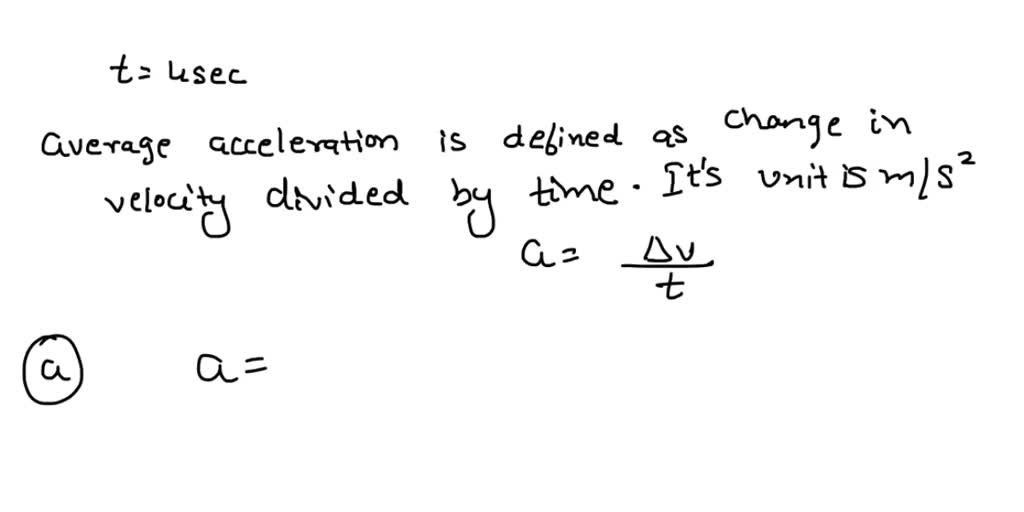 t= 4sec
average acceleration is defined as change in
velocity divided by time. It's unit is m/s²
a = Δv/t
ⓐ a =